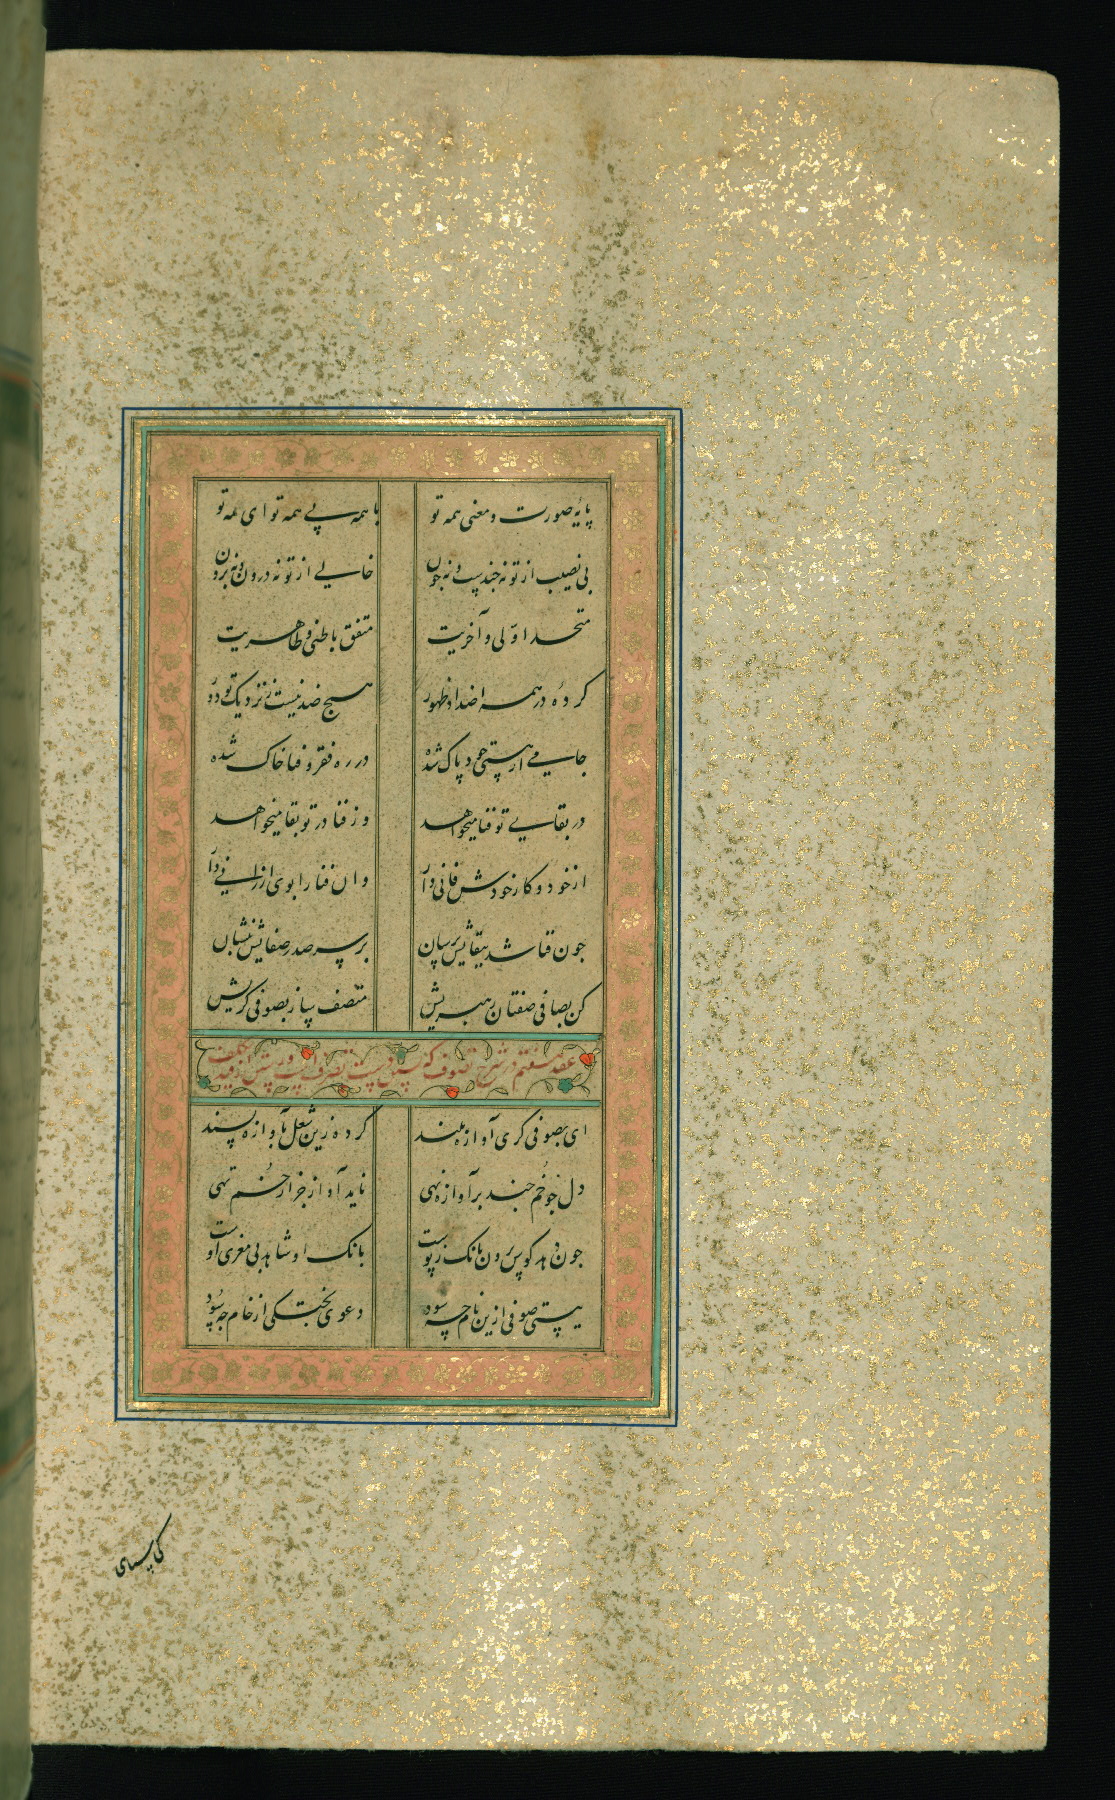 پایهٔ صورت و معنی همه تو با همه بی همه تو ای همه تو
بی نصیب از تو نه چند و نه چون خالی از تو نه درون و نه برون
متحد اولی و آخریت متفق باطنی و ظاهریت
کرده در همه اضداد ظهور هیچ ضد نیست ز نزدیک تو دور
جامی از هستی خود پاک شده در ره فقر و فنا خاک شده
در بقای تو فنا میخواهد وز فنا در تو بقا میخواهد
از خود و کار خودش فانی دار وان فنا را بوی ارزانی دار
چون فنا شد ببقایش برسان بر سر صدر صفایش بنشان
کن بصافی صفتان رهبریش متصف ساز بصوفی گریش
عقد هشتم در شرح تصوف که
ای بصوفی گری آوازه بلند کرده زین شغل بآوازه پسند
دل چو خم چند بر آوازه نهی ناید آواز جز از خم تهی
چون دهد کوس برون بانک ز پوست بانک او شاهد بی مغزی اوست
نیستی صوفی ازین نام چه سود دعوی پختگی از خام چه سود
کی سیمای